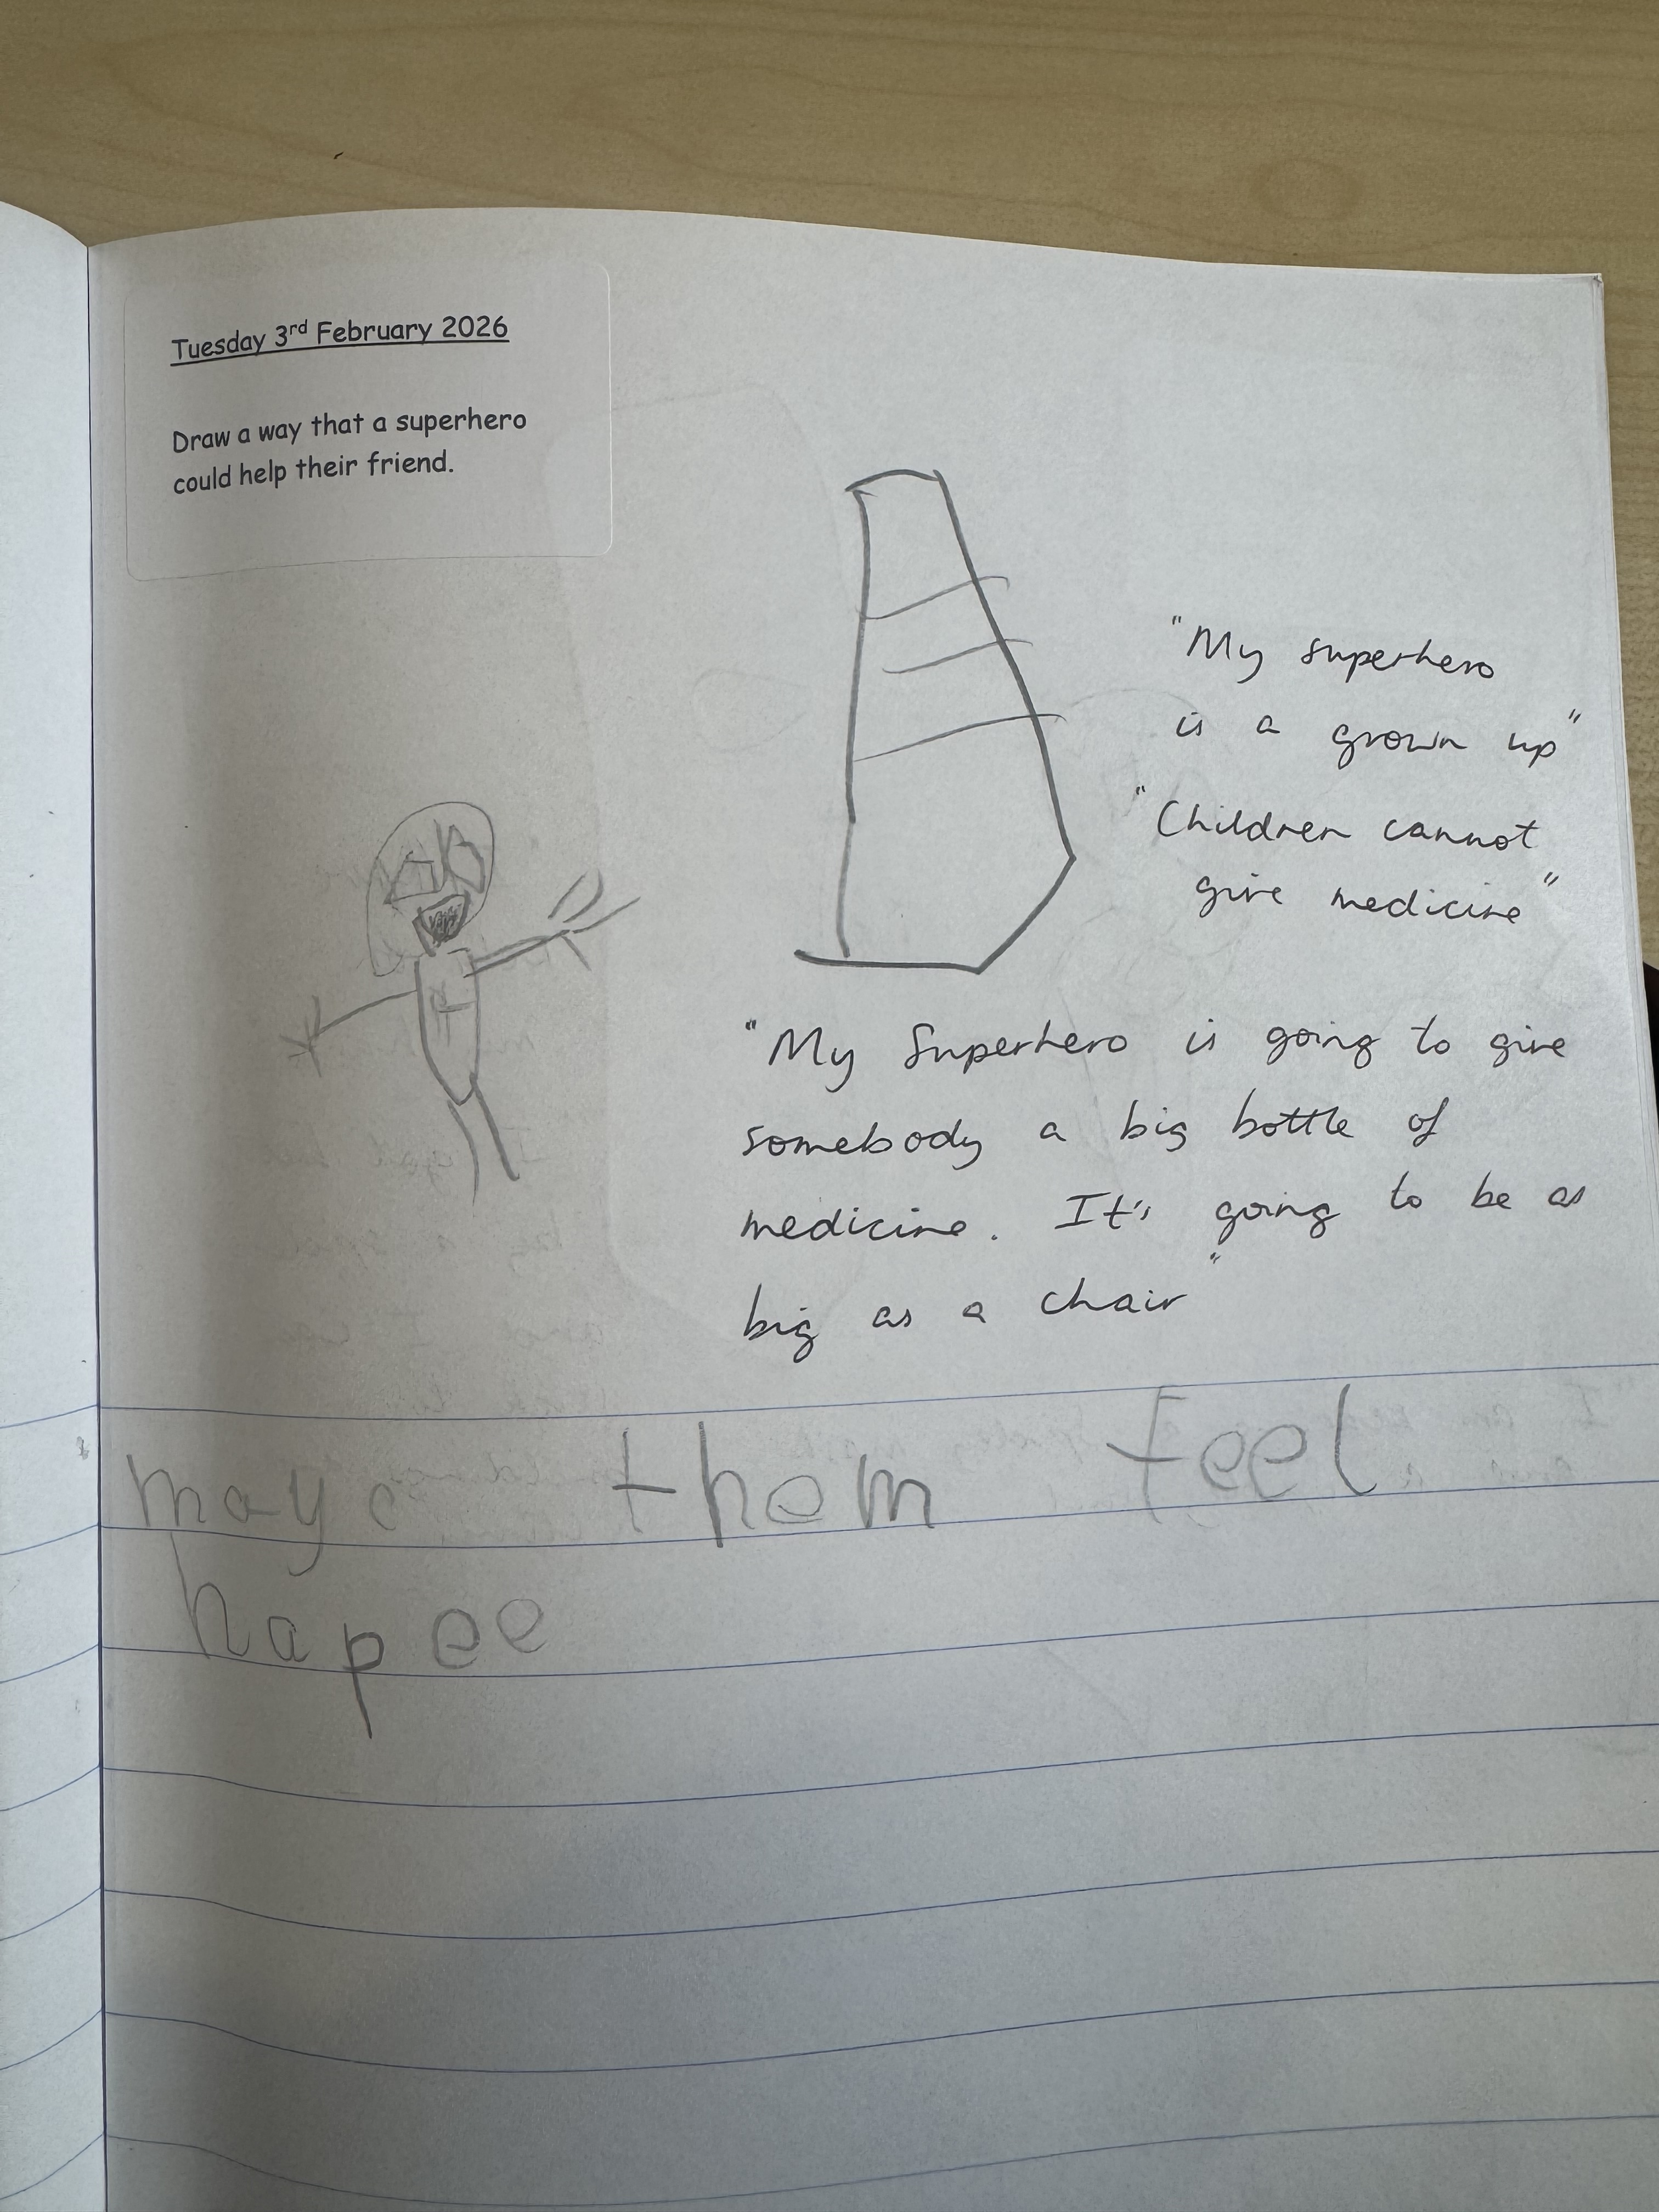 Tuesday 3rd February 2026
Draw a way that a superhero
could help their friend.
"My superhero
is a grown up"
"Children cannot
give medicine"
"My Superhero is going to give
somebody a big bottle of
medicine. It's going to be as
big as a chair"
mayc them feel
hapee